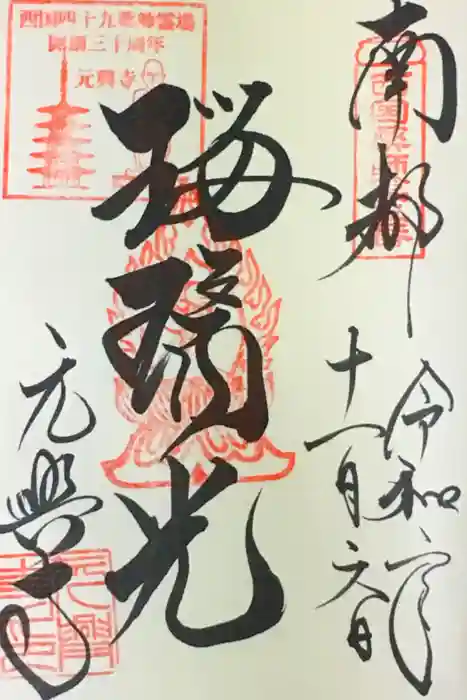 南都
令和元年
十一月六日
瑠璃光
元興寺
西国四十九薬師霊場
開創三十周年
元興寺